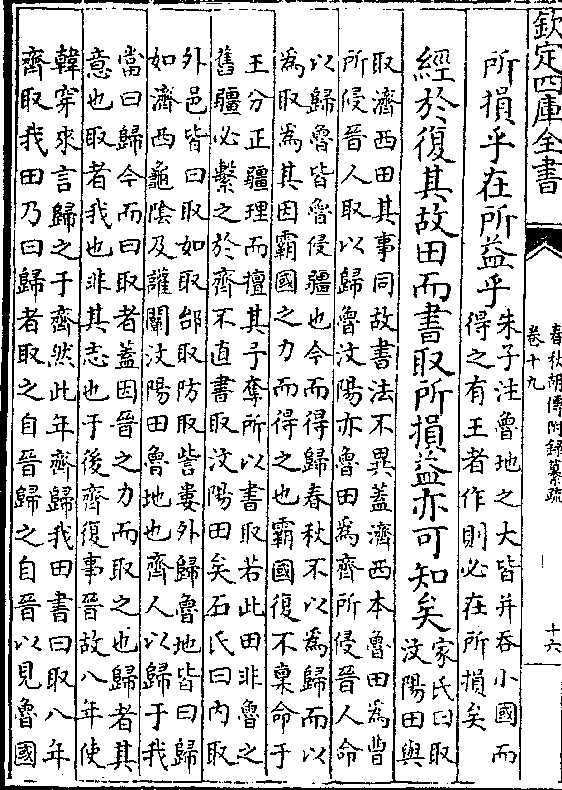 欽定四庫全書
春秋胡傳附録纂疏
卷十九
十六
所損乎在所益乎
朱子注魯地之大皆并吞小國而
得之有王者作則必在所損矣
經於復其故田而書取所損益亦可知矣
家氏曰取
汶陽田與
取濟西田其事同故書法不異蓋濟西本魯田為曹
所侵晉人取以歸魯汶陽亦魯田為齊所侵晉人命
以歸魯皆魯侵疆也今而得歸春秋不以為歸而以
為取為其因霸國之力而得之也霸國復不稟命于
王分正疆理而擅其予奪所以書取若此田非魯之
舊疆必繫之於齊不直書取汶陽田矣石氏曰内取
外邑皆曰取如取郜取防取訾婁外歸魯地皆曰歸
如濟西龜陰及讙闡汶陽田魯地也齊人以歸于我
當曰歸今而曰取者蓋因晉之力而取之也歸者其
意也取者我也非其志也于後齊復事晉故八年使
韓穿來言歸之于齊然此年齊歸我田書曰取八年
齊取我田乃曰歸者取之自晉歸之自晉以見魯國